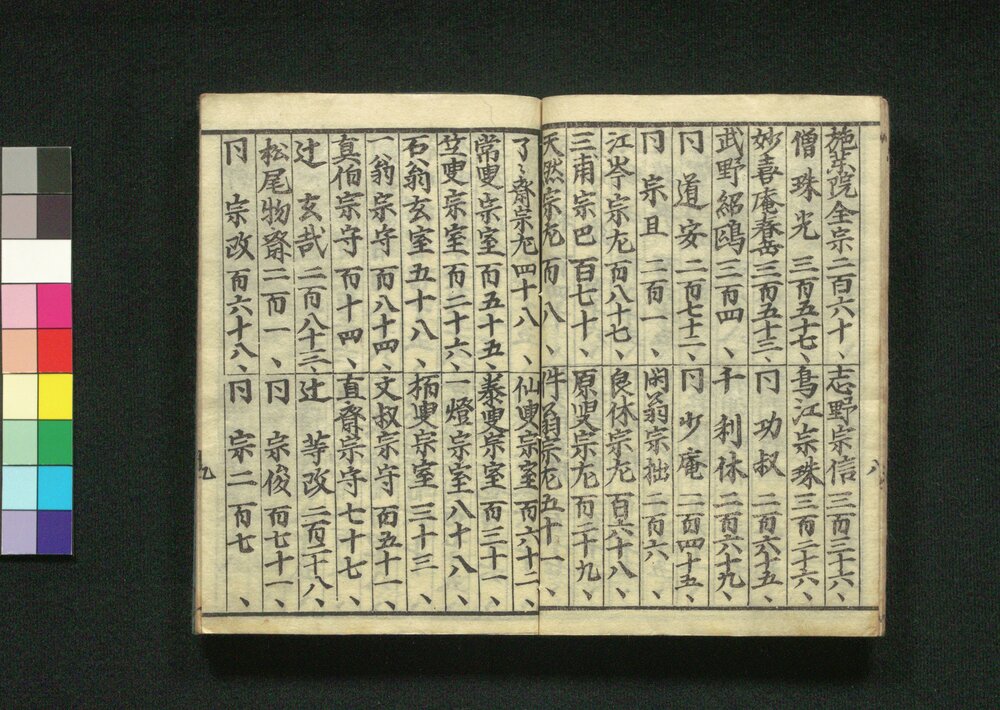 施薬院全宗二百六十、志野宗信三百二十六、
僧珠光三百五十七、鳥江宗珠三百二十六、
妙喜庵春岳三百五十三、冂功叔二百六十五、
武野紹鴎二百四、千利休二百六十九、
冂道安二百七十二、冂少庵二百四十五、
冂宗旦二百一、閑翁宗拙二百六
江岑宗左百八十七、良休宗左百六十八、
三甫宗巴百七十、原叟宗左百二十九、
天然宗左百八、件翁宗左五十一、
了々齋宗左四十八、仙叟宗室百六十二、
常叟宗室百五十五、泰叟宗室百三十一、
竺叟宗室百二十六、一燈宗室八十八、
石翁玄室五十八、栢叟宗室三十三、
一翁宗守百八十四、文叔宗守百五十一、
真伯宗守百十四、直齋宗守七十七、
辻玄哉二百八十三、辻等改二百二十八、
松尾物齋二百一、冂宗俊百七十一、
冂宗改百六十八、冂宗二百七
八
九